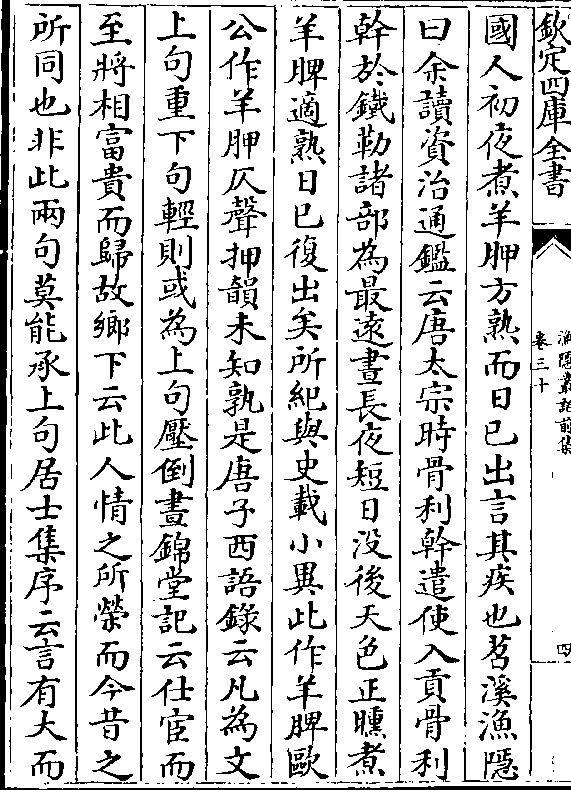 欽定四庫全書
漁隱叢話前集
卷三十
四
國人初夜煮羊胛方熟而日已出言其疾也苕溪漁隱
曰余讀資治通鑑云唐太宗時骨利幹遣使入貢骨利
幹於鐵勒諸部為最遠晝長夜短日没後天色正曛煮
羊脾適熟日已復出矣所紀與史載小異此作羊脾歐
公作羊胛仄聲押韻未知孰是唐子西語錄云凡為文
上句重下句輕則或為上句壓倒晝錦堂記云仕宦而
至將相富貴而歸故鄉下云此人情之所榮而今昔之
所同也非此兩句莫能承上句居士集序云言有大而